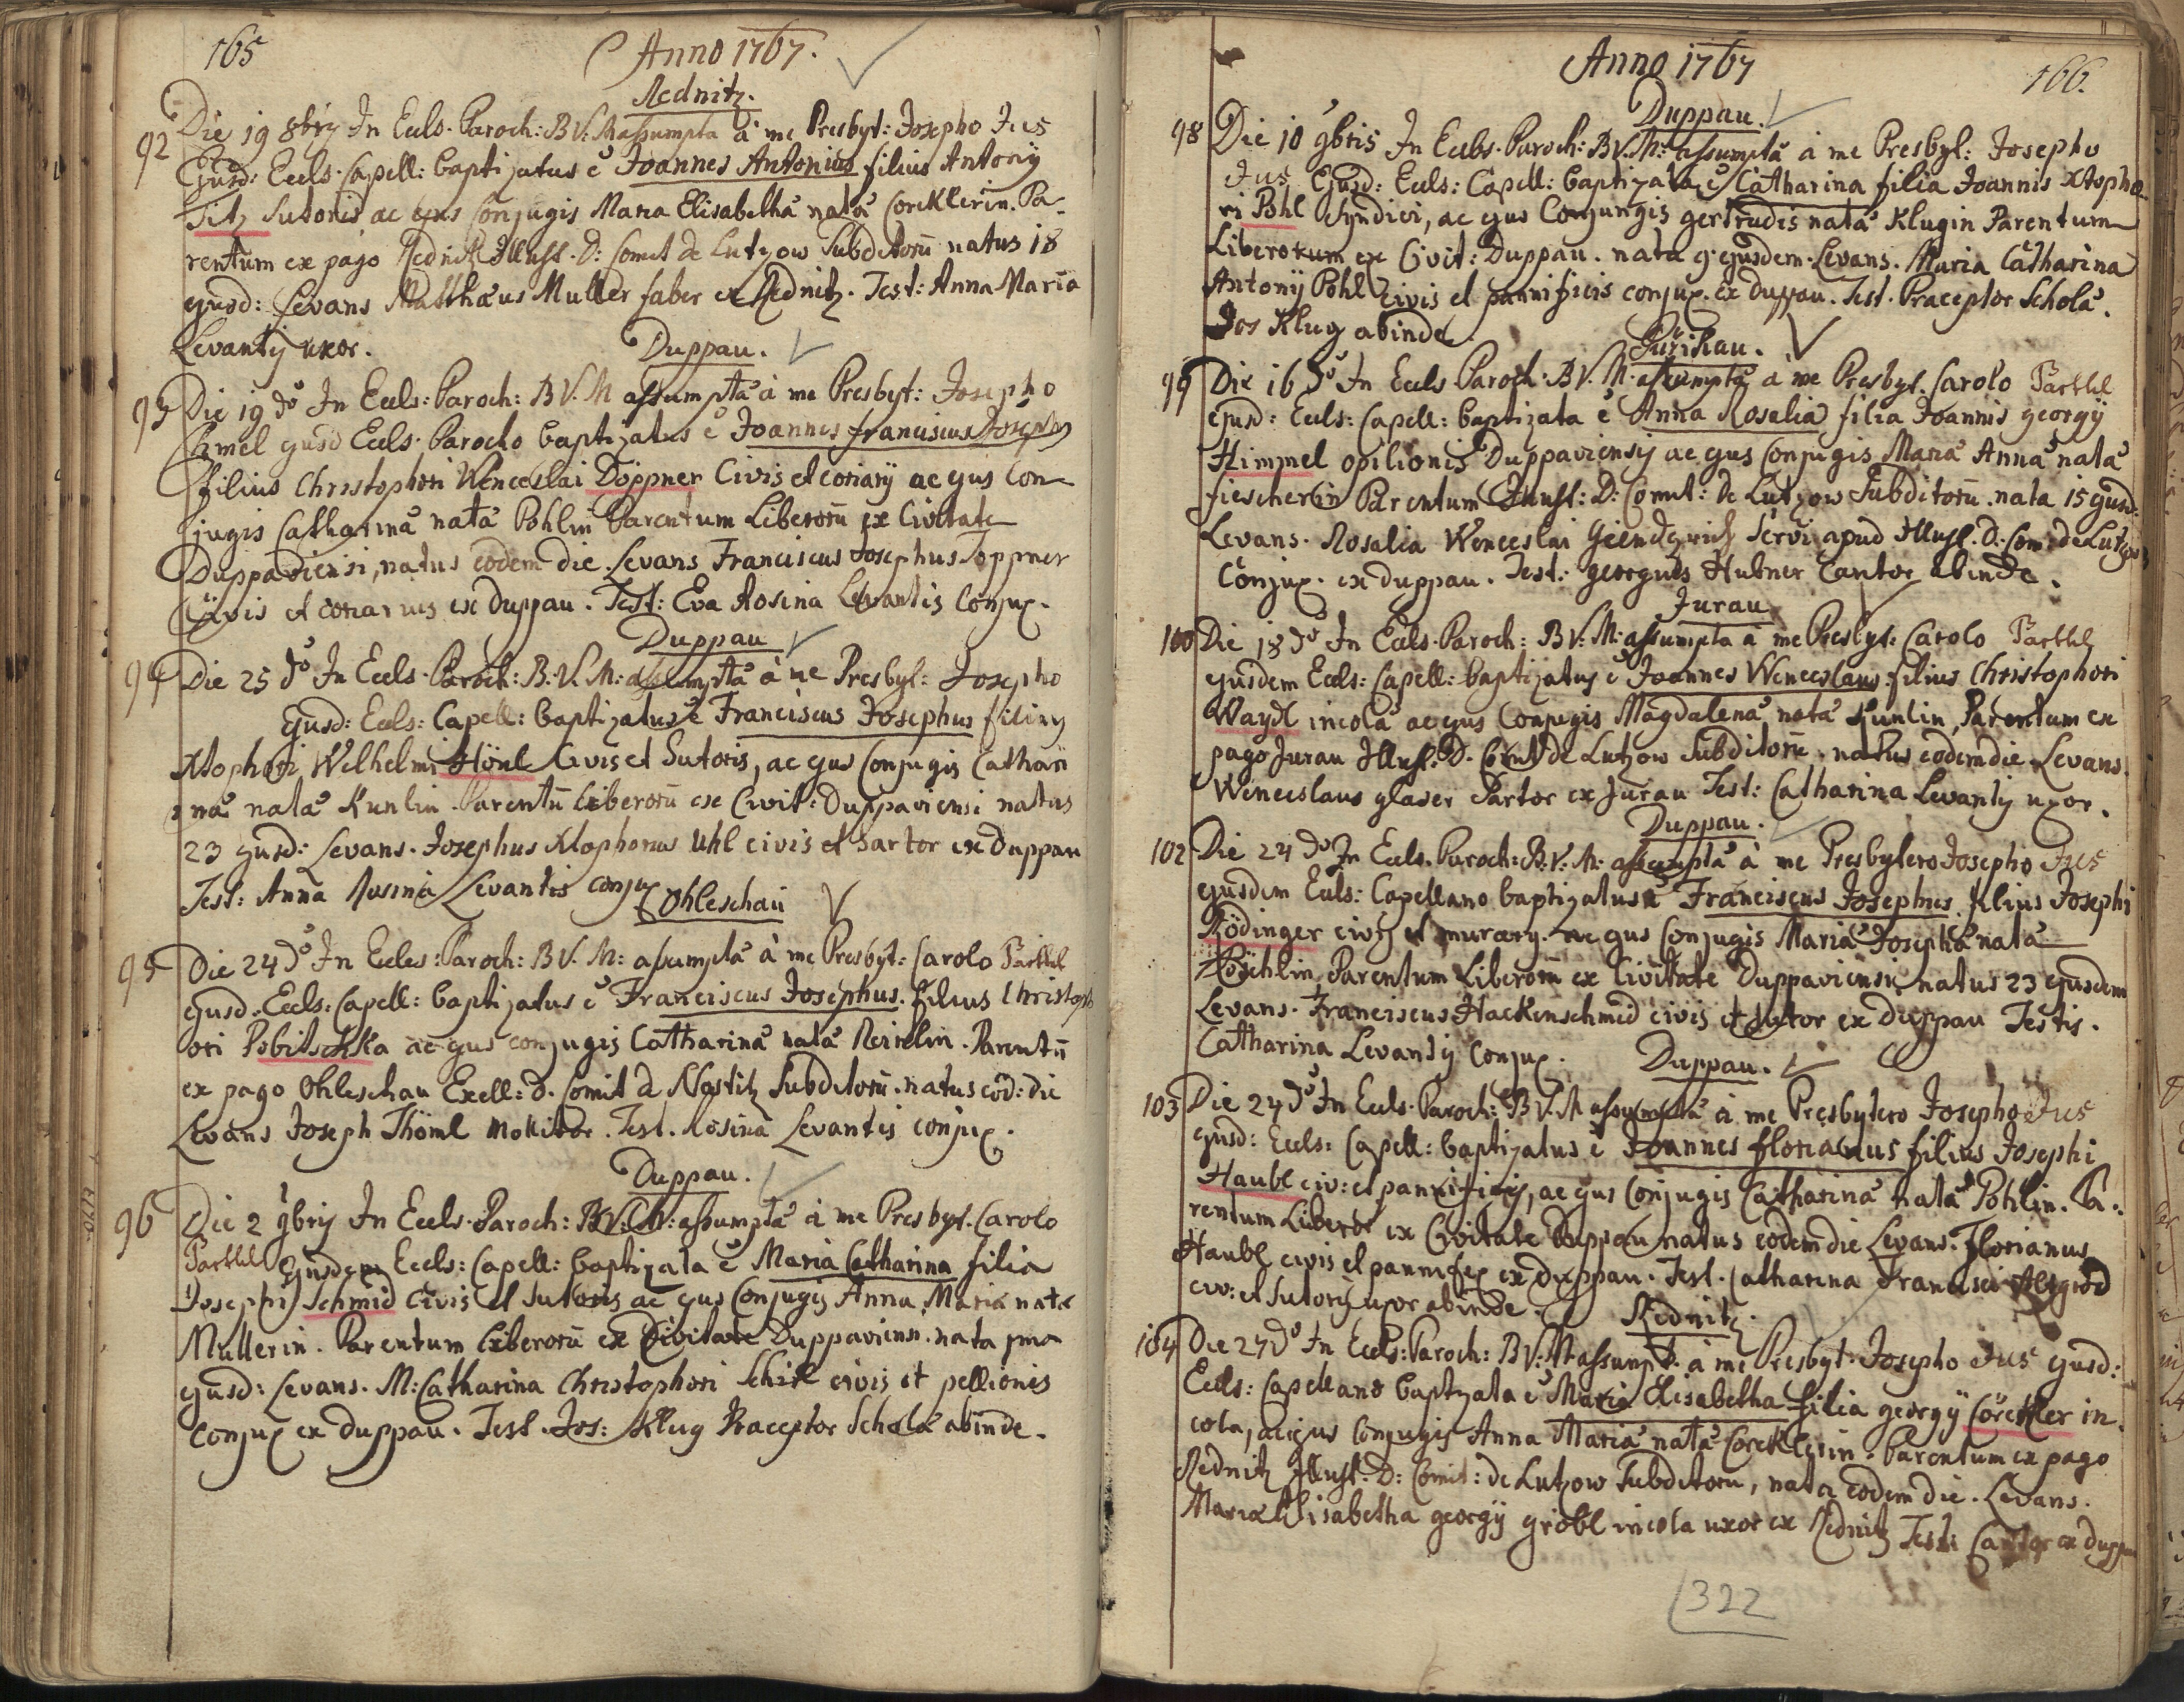 165
Anno 1767.
Rednitz.
92 Die 19 8bris In Eccls. Paroch: B V. M assumpta à me Presbyt: Josepho Jus
Ejusd: Eccls. Capell: baptizatus ē Joannes Antonius filius Antonÿ
Titz Sutoris ac ejus Conjugis Maria Elisabetha nata Corcklerin. Pa-
rentum ex pago Rednitz Illust. D: Comit de Lutzow Subditorū natus 18
ejusd: Levans Matthæus Muller faber ex Rednitz. Test: Anna Maria
Levantÿ uxor.
Duppau.
93 Die 19 do In Eccls: Paroch: B V. M assumpta à me Presbyt: Josepho
ejusd Eccls. Parocho baptizatus ē Joannes franciscus Josephus
filius Christophori Wenceslai Döppner Civis et coriarÿ ac ejus Con-
jugis Catharina nata Pohlin Parentum Liberorū ex Civitate
Duppaviensi, natus eodem die. Levans Franciscus Josephus Toppner
Civis et coriarius ex duppau. Test: Eva Rosina Levantis Conjux.
Duppau
94 Die 25 do In Eccls. Paroch: B. V. M: assumpta à me Presbyt: Josepho
ejusd: Eccls: Capell: baptizatus ē Franciscus Josephus filius
Xtophori Wilhelmi Hönl Civis et Sutoris, ac ejus Conjugis Cathari
na nata Kunlin. Parentū Liberorū ex Civit: Duppaviensi natus
23 ejusd: Levans. Josephus Xtophorus Uhl civis et Sartor ex Duppau
Test: Anna Rosina Levantis conjux
Ohleschau
95 Die 24 do In Eccles: Paroch: B V. M: assumpta à me Presbyt: Carolo Parthl
ejusd. Eccls: Capell: baptizatus ē Franciscus Josephus. filius Christoph
ori Pobitschka ac ejus conjugis Catharina nata Reinlin. Parentū
ex pago Ohleschau Excell: d. Comit d Nostitz Subditorū. natus eod: die
Levans Joseph Thöml Molitor. Test. Rosina Levantis conjux.
Duppau.
96 Die 2 9bris In Eccls. Paroch: B V. M: assumpta à me Presbyt. Carolo
Parthl Ejusdem Eccls: Capell: baptizata ē Maria Catharina filia
Josephi Schmid Civis et Sutoris ac ejus Conjugis Anna Maria nata
Mullerin. Parentum Liberorū ex Civitate Duppaviensi. nata 1ma
ejusd: Levans. M: Catharina Christophori Schirl civis et pellionis
Conjux ex duppau. Test. Jos: Klug Præceptor Schola abinde.
Anno 1767
166.
Duppau.
98 Die 10 9bris In Eccls. Paroch: B V. M: assumpta à me Presbyt: Josepho
Jus Ejusd: Eccls: Capell: baptizata ē Catharina filia Joannis Xtopho
ri Pohl Syndici, ac ejus Conjungis gertrudis nata Klugin Parentum
Liberorum ex Civit: Duppau. nata 9 ejusdem. Levans. Maria Catharina
Antonÿ Pohl Civis et pannificis conjux. ex duppau. Test. Præceptor Schola.
Jos Klug abinde.
Gürikau.
99 Die 16 do In Eccls Paroch: B V. M. assumpta à me Presbyt. Carolo Parthl
ejusd: Eccls: Capell: baptizata ē Anna Rosalia filia Joannis georgÿ
Himmel opilionis Duppaviensÿ ac ejus Conjugis Maria Anna nata
fiescherlin Parentum Illust: D: Comit: de Lutzow Subditorū. nata 15 ejusd:
Levans. Rosalia Wenceslai Servi apud Illust. D. Com: de Lutzow
Conjux. ex duppau. Test: georgius Hubner Cantor abinde.
Jurau
100 Die 18 do In Eccls. Paroch: B V: M: assumpta à me Presbyt: Carolo Parthl
ejusdem Eccls: Capell: baptizatus ē Joannes Wenceslaus filius Christophori
Waydl incola ac ejus Conjugis Magdalena nata Kunlin, Parentum ex
pago Jurau Illust. D. Comit de Lutzow Subditorū. natus eodem die. Levans.
Wenceslaus glaser Sartor ex Jurau Test: Catharina Levantÿ uxor.
Duppau.
102 Die 24 do In Eccls. Paroch: B. V. M: assumpta à me Presbytero Josepho Jus
ejusdem Eccls: Capellano baptizatus ē Franciscus Josephus filius Josephi
Rödinger civis et murarÿ. ac ejus Conjugis Maria Josepha nata
Röschlin, Parentum Liberorū ex Civitate Duppaviensi, natus 23 ejusdem
Levans. Franciscus Hackenschmid civis et Sutor ex Duppau Testis.
Catharina Levantÿ Conjux.
Duppau.
103 Die 24 do In Eccls. Paroch: B V. M assumpta à me Presbytero Josepho Jus
ejusd: Eccls: Capell: baptizatus ē Joannes florianus filius Josephi
Haubl civ: et pannificis, ac ejus Conjugis Catharina nata Pohlin. Pa:
rentum Liberor ex Civitate Duppau natus eodem die Levans. Florianus
Haubl civis et pannifex ex duppau. Test. Catharina Francisci
civ: et Sutoris uxor abinde.
Rednitz.
104 Die 27 do In Eccls: Paroch: B V: M assumpt. à me Presbyt. Josepho Jus ejusd:
Eccls: Capellano baptizata ē Maria Elisabetha filia georgÿ Corckler in-
cola, ac ejus Conjugis Anna Maria nata Corcklerin. Parentum ex pago
Rednitz Illust. D: Comit: de Lutzow Subditoru, nata eodem die. Levans.
Maria Elisabetha georgÿ gröbl incola uxor ex Rednitz Test: Cantor ex dupp
322